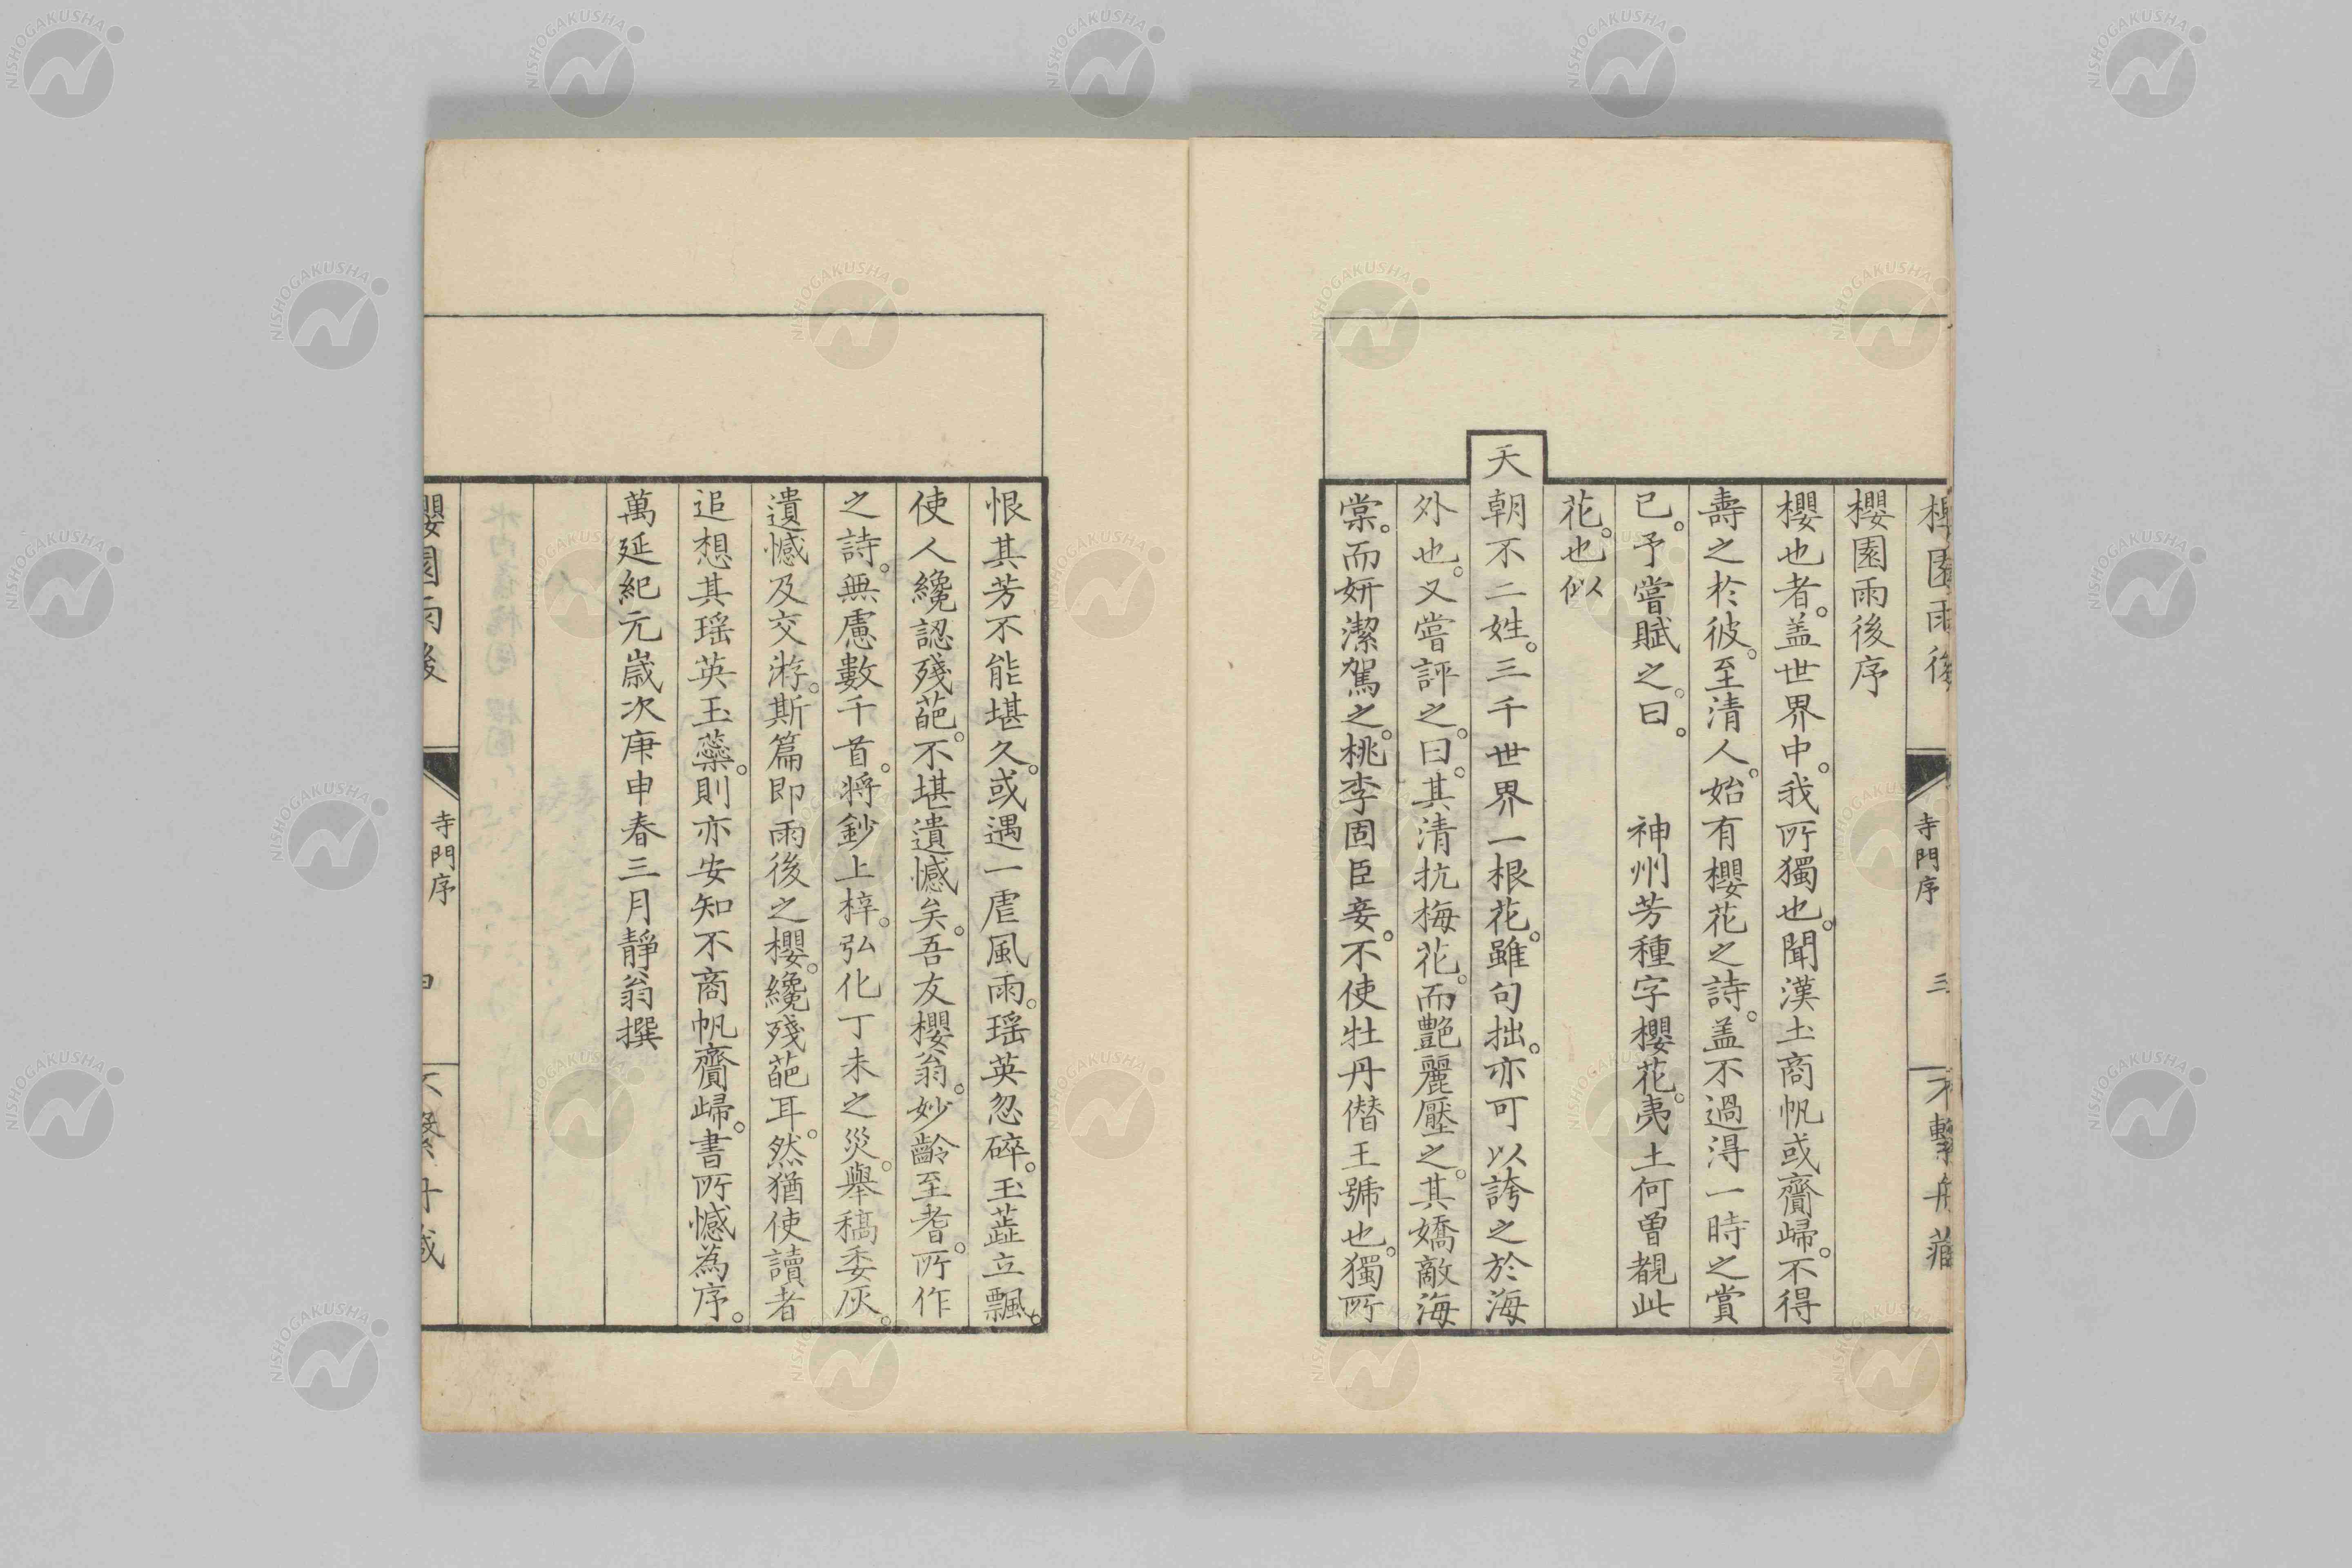 櫻園雨後
寺門序
三
不繫舟藏
櫻園雨後序
櫻也者。盖世界中。我所獨也。聞漢土商帆或齎歸。不得
壽之於彼。至清人。始有櫻花之詩。盖不過淂一時之賞
已。予嘗賦之。曰。神州芳種字櫻花。夷土何曽覩此
花。也似
天朝不二姓。三千世界一根花。雖句拙。亦可以誇之於海
外也。又嘗評之。曰。其清抗梅花。而艶麗壓之。其嬌敵海
棠。而妍潔駕之。桃李固臣妾。不使牡丹僭王號也。獨所
恨其芳不能堪久。或遇一虐風雨。瑶英忽碎。玉蕋立飄。
使人纔認殘葩。不堪遺憾矣。吾友櫻翁。妙齡至耆。所作
之詩。無慮數千首。将鈔上梓。弘化丁未之災。舉稿委灰。
遺憾及交游。斯篇即雨後之櫻。纔殘葩耳。然猶使讀者
追想其瑶英玉蘂。則亦安知不商帆齎歸。書所憾為序。
萬延紀元嵗次庚申春三月靜翁撰
櫻園雨後
寺門序
NISHOGAKUSHA